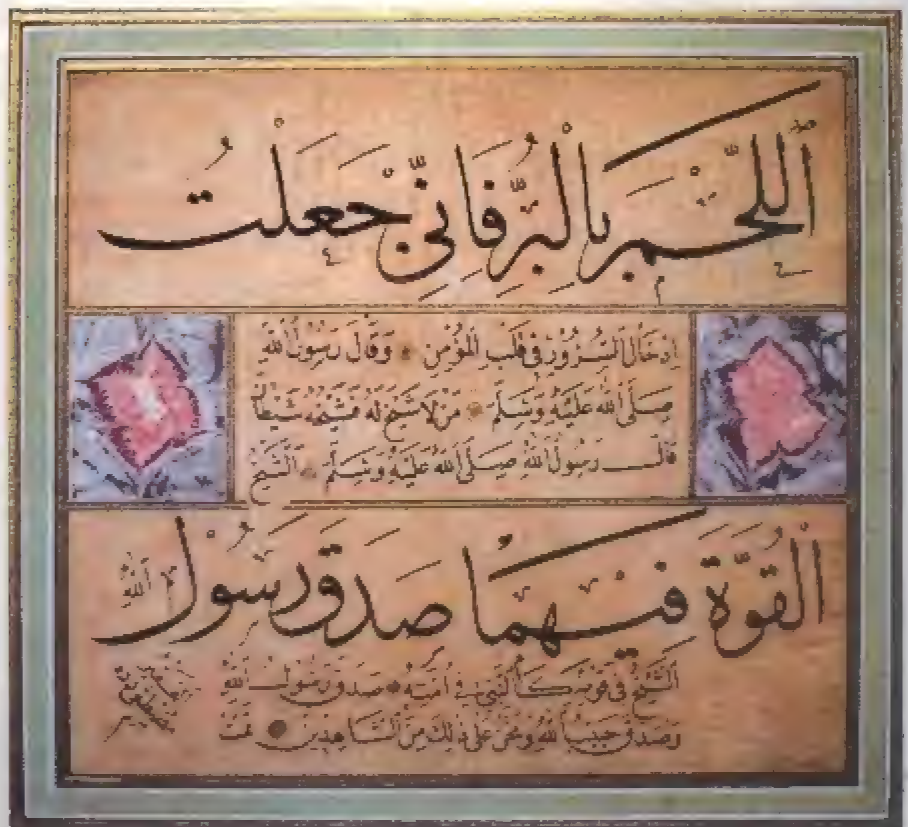 اَللَّحْمَ بِالْبُرِّ فَاِنِّي جَعَلْتُ
اِدْخَالُ السُّرُورِ فِي قَلْبِ الْمُؤْمِنِ وَقَالَ رَسُولُ اللهِ
صَلَّى اللهُ عَلَيْهِ وَسَلَّمَ مَنْ لَا شَيْخَ لَهُ فَشَيْخُهُ شَيْطَانٌ
قَالَ رَسُولُ اللهِ صَلَّى اللهُ عَلَيْهِ وَسَلَّمَ اَلشَّيْخُ
الْقُوَّةَ فِيْهِمَا صَدَقَ رَسُولُ اللهِ
اَلشَّيْخُ فِي قَوْمِهِ كَالنَّبِيِّ فِي اُمَّتِهِ صَدَقَ رَسُولُ اللهِ
وَصَدَقَ حَبِيبُ اللهِ وَنَحْنُ عَلَى ذٰلِكَ مِنَ الشَّاهِدِينَ تَمَّتْ